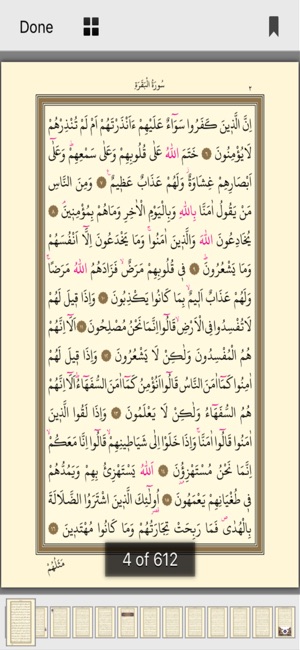 Done
سُورَةُ الْبَقَرَةِ
٢
اِنَّ الَّذ۪ينَ كَفَرُوا سَوَٓاءٌ عَلَيْهِمْ ءَاَنْذَرْتَهُمْ اَمْ لَمْ تُنْذِرْهُمْ
لَا يُؤْمِنُونَ ٦ خَتَمَ اللّٰهُ عَلٰى قُلُوبِهِمْ وَعَلٰى سَمْعِهِمْۜ وَعَلٰٓى
اَبْصَارِهِمْ غِشَاوَةٌۘ وَلَهُمْ عَذَابٌ عَظ۪يمٌ ٧ وَمِنَ النَّاسِ
مَنْ يَقُولُ اٰمَنَّا بِاللّٰهِ وَبِالْيَوْمِ الْاٰخِرِ وَمَا هُمْ بِمُؤْمِن۪ينَۢ ٨
يُخَادِعُونَ اللّٰهَ وَالَّذ۪ينَ اٰمَنُواۚ وَمَا يَخْدَعُونَ اِلَّٓا اَنْفُسَهُمْ
وَمَا يَشْعُرُونَۜ ٩ ف۪ي قُلُوبِهِمْ مَرَضٌۙ فَزَادَهُمُ اللّٰهُ مَرَضًاۚ
وَلَهُمْ عَذَابٌ اَل۪يمٌ بِمَا كَانُوا يَكْذِبُونَ ١٠ وَاِذَا ق۪يلَ لَهُمْ
لَا تُفْسِدُوا فِي الْاَرْضِۙ قَالُٓوا اِنَّمَا نَحْنُ مُصْلِحُونَ ١١ اَلَٓا اِنَّهُمْ
هُمُ الْمُفْسِدُونَ وَلٰكِنْ لَا يَشْعُرُونَ ١٢ وَاِذَا ق۪يلَ لَهُمْ
اٰمِنُوا كَمَٓا اٰمَنَ النَّاسُ قَالُٓوا اَنُؤْمِنُ كَمَٓا اٰمَنَ السُّفَهَٓاءُۜ اَلَٓا اِنَّهُمْ
هُمُ السُّفَهَٓاءُ وَلٰكِنْ لَا يَعْلَمُونَ ١٣ وَاِذَا لَقُوا الَّذ۪ينَ
اٰمَنُوا قَالُٓوا اٰمَنَّاۚ وَاِذَا خَلَوْا اِلٰى شَيَاط۪ينِهِمْۙ قَالُٓوا اِنَّا مَعَكُمْۙ
اِنَّمَا نَحْنُ مُسْتَهْزِؤُ۫نَ ١٤ اَللّٰهُ يَسْتَهْزِئُ بِهِمْ وَيَمُدُّهُمْ
ف۪ي طُغْيَانِهِمْ يَعْمَهُونَ ١٥ اُو۬لٰٓئِكَ الَّذ۪ينَ اشْتَرَوُا الضَّلَالَةَ
بِالْهُدٰىۖ فَمَا رَبِحَتْ تِجَارَتُهُمْ وَمَا كَانُوا مُهْتَد۪ينَ ١٦
مَثَلُهُمْ
4 of 612